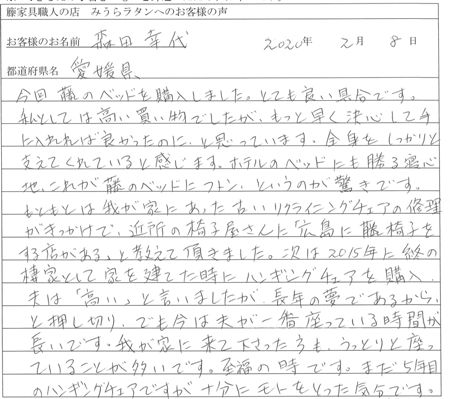 籐家具職人の店　みうらラタンへのお客様の声
お客様のお名前　森田 幸代　2020年 2月 8日
都道府県名　愛媛県
今回 藤のベッドを購入しました。とても良い具合です。
私としては高い買い物でしたが、もっと早く決心して手
に入れれば良かったのに、と思っています。全身をしっかりと
支えてくれていると感じます。ホテルのベッドにも勝る寝心
地、これが藤のベッドにフトン、というのが驚きです。
もともとは我が家にあった古いリクライニングチェアの修理
がきっかけで、近所の椅子屋さんに「広島に藤椅子を
する店がある」と教えて頂きました。次は2015年に終の
棲家として家を建てた時にハンギングチェアを購入、
夫は「高い」と言いましたが、長年の夢であるから、
と押し切り、でも今は夫が一番座っている時間が
長いです。我が家に来て下さった方も、うっとりと座っ
ていることが多いです。至福の時です。まだ5年目
のハンギングチェアですが十分にモトをとった気分です。